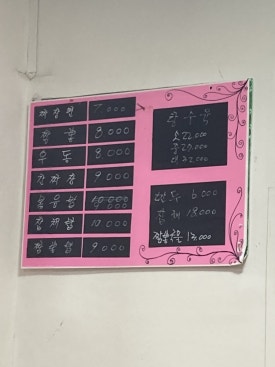 짜장면 7000
짬뽕 8000
우동 8.000
간짜장 9000
볶음밥 10.000
잡채밥 10.000
짬뽕밥 9.000
탕수육
소 22,000
중 27,000
대 32.000
만두 6000
잡채 18.000
짬뽕국물 13.000